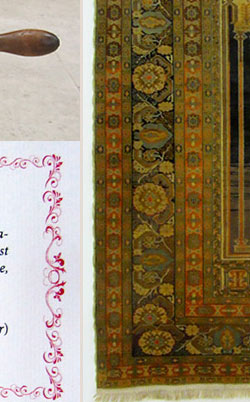 a-
st
e,
r)